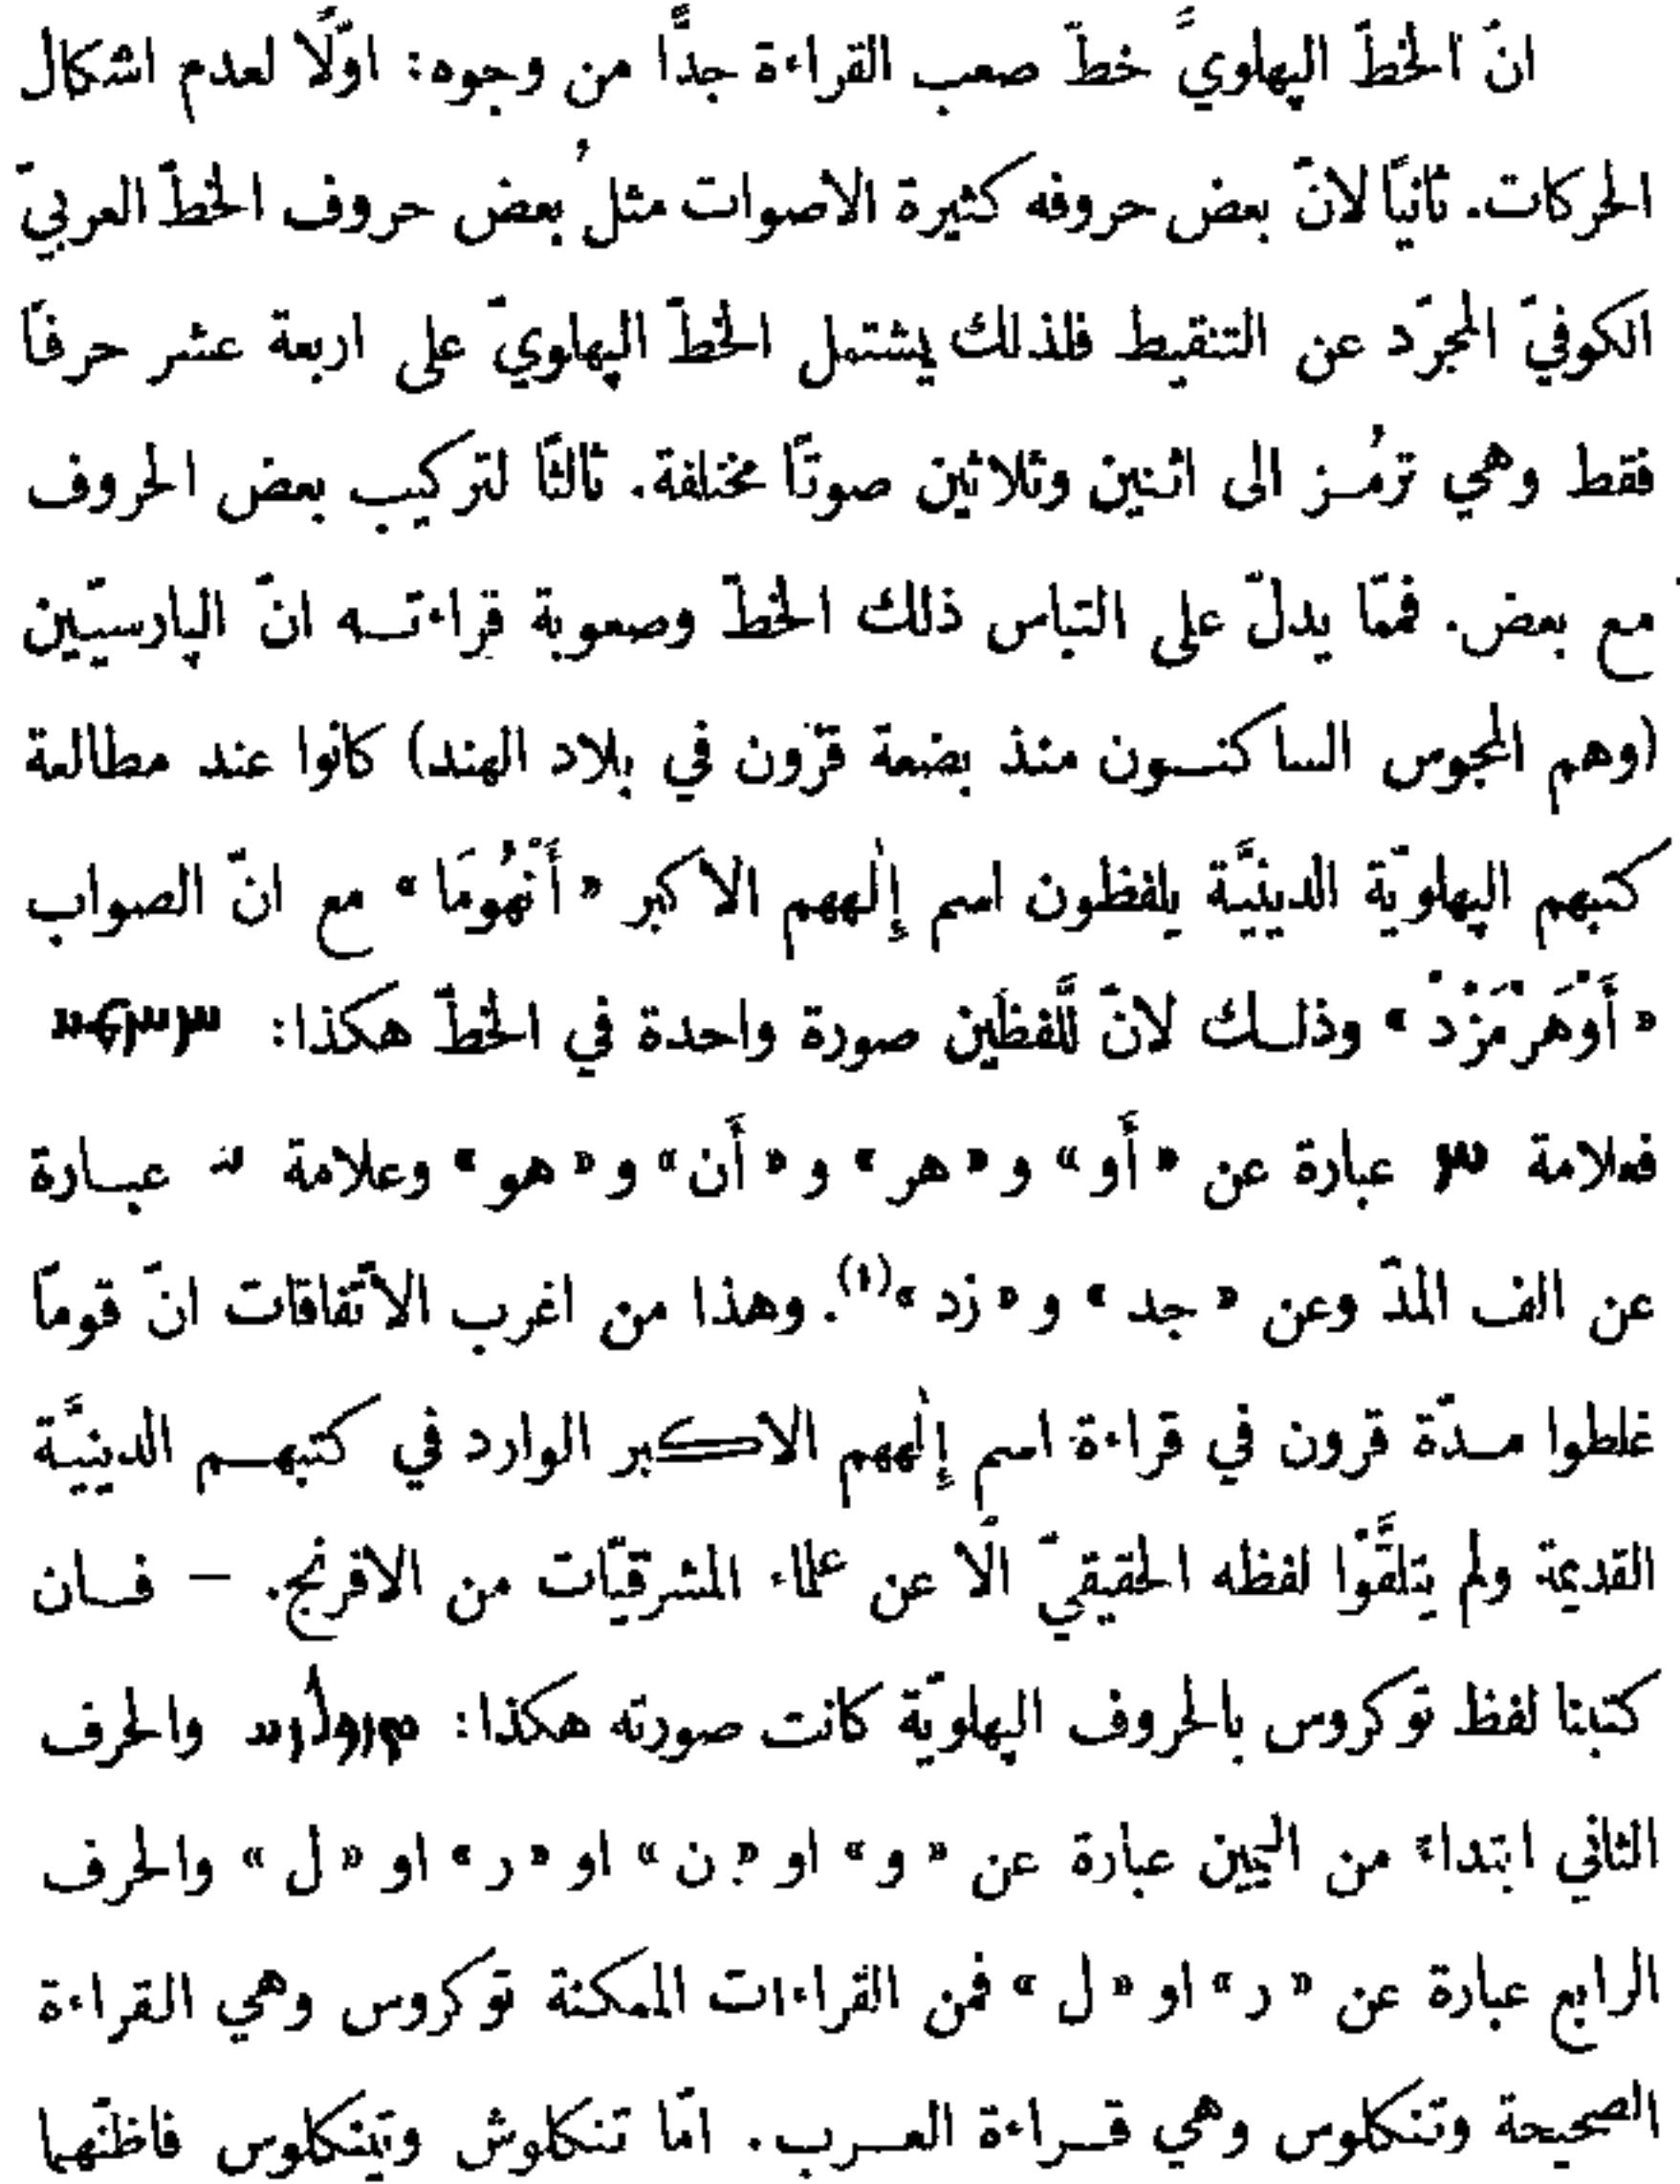 انّ الخطّ الپهلويّ خطّ صعب القراءة جدًّا من وجوه: اوّلًا لعدم اشكال
الحركات. ثانيًا لانّ بعض حروفه كثيرة الاصوات مثلُ بعض حروف الخطّ العربيّ
الكوفيّ المجرّد عن التنقيط فلذلك يشتمل الخطّ الپهلويّ على اربعة عشر حرفًا
فقط وهي ترمُـز الى اثنين وثلاثين صوتًا مختلفة. ثالثًا لتركيب بعض الحروف
مع بعض. فممّا يدلّ على التباس ذلك الخطّ وصعوبة قراءتـه انّ الپارسيّين
(وهم المجوس الساكنـون منذ بضعة قرون في بلاد الهند) كانوا عند مطالعة
كتبهم الپهلويّة الدينيَّة يلفظون اسم إِلٰههم الاكبر « أَنْهُومَا » مع انّ الصواب
« أَوْهَرْمَزْدْ » وذلـك لانّ لَّلفظَين صورة واحدة في الخطّ هكذا:
فعلامة عبارة عن « أَو » و « هر » و « أَن » و « هو » وعلامة عبـارة
عن الف المدّ وعن « جد » و « زد »(١). وهذا من اغرب الاتّفاقات انّ قومًا
غلطوا مـدّة قرون في قراءة اسم إِلٰههم الاكبر الوارد في كتبهـم الدينيَّة
القديمة ولم يتلقَّوْا لفظه الحقيقيّ الّا عن علماء المشرقيّات من الافرنج. – فـان
كتبنا لفظ توكروس بالحروف الپهلويّة كانت صورته هكذا: والحرف
الثاني ابتداءً من اليمين عبارة عن « و » او « ن » او « ر » او « ل » والحرف
الرابع عبارة عن « ر » او « ل » فمن القراءات الممكنة توكروس وهي القراءة
الصحيحة وتنكلوس وهي قـراءة العـرب. امّا تنكلوش وتينكلوس فاظنّهما